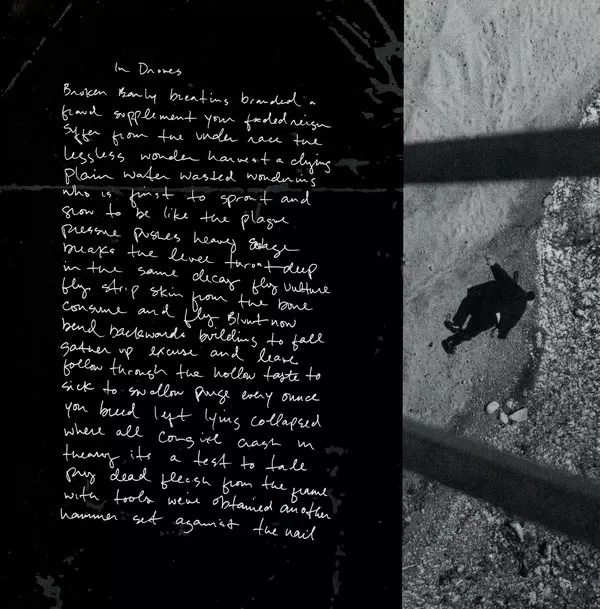 In Drones
Broken Barly breating branded a
fraud supplement your faded reign
Syffer from the under race the
legless wonder harvest a dying
plain water wasted wondering
who is first to sprout and
grow to be like the plague
pressure pushes heavy
breaks the levee throat deep
in the same decay fly vulture
fly strip skin from the bone
consume and fly Blunt now
bend backwards building to fall
gather up excuse and leave
follow through the hollow taste to
sick to swallow purge every ounce
you breed left lying collapsed
where all crash in
theory its a test to fall
pry dead fleash from the frame
with tools weve obtained another
hammer set against the nail